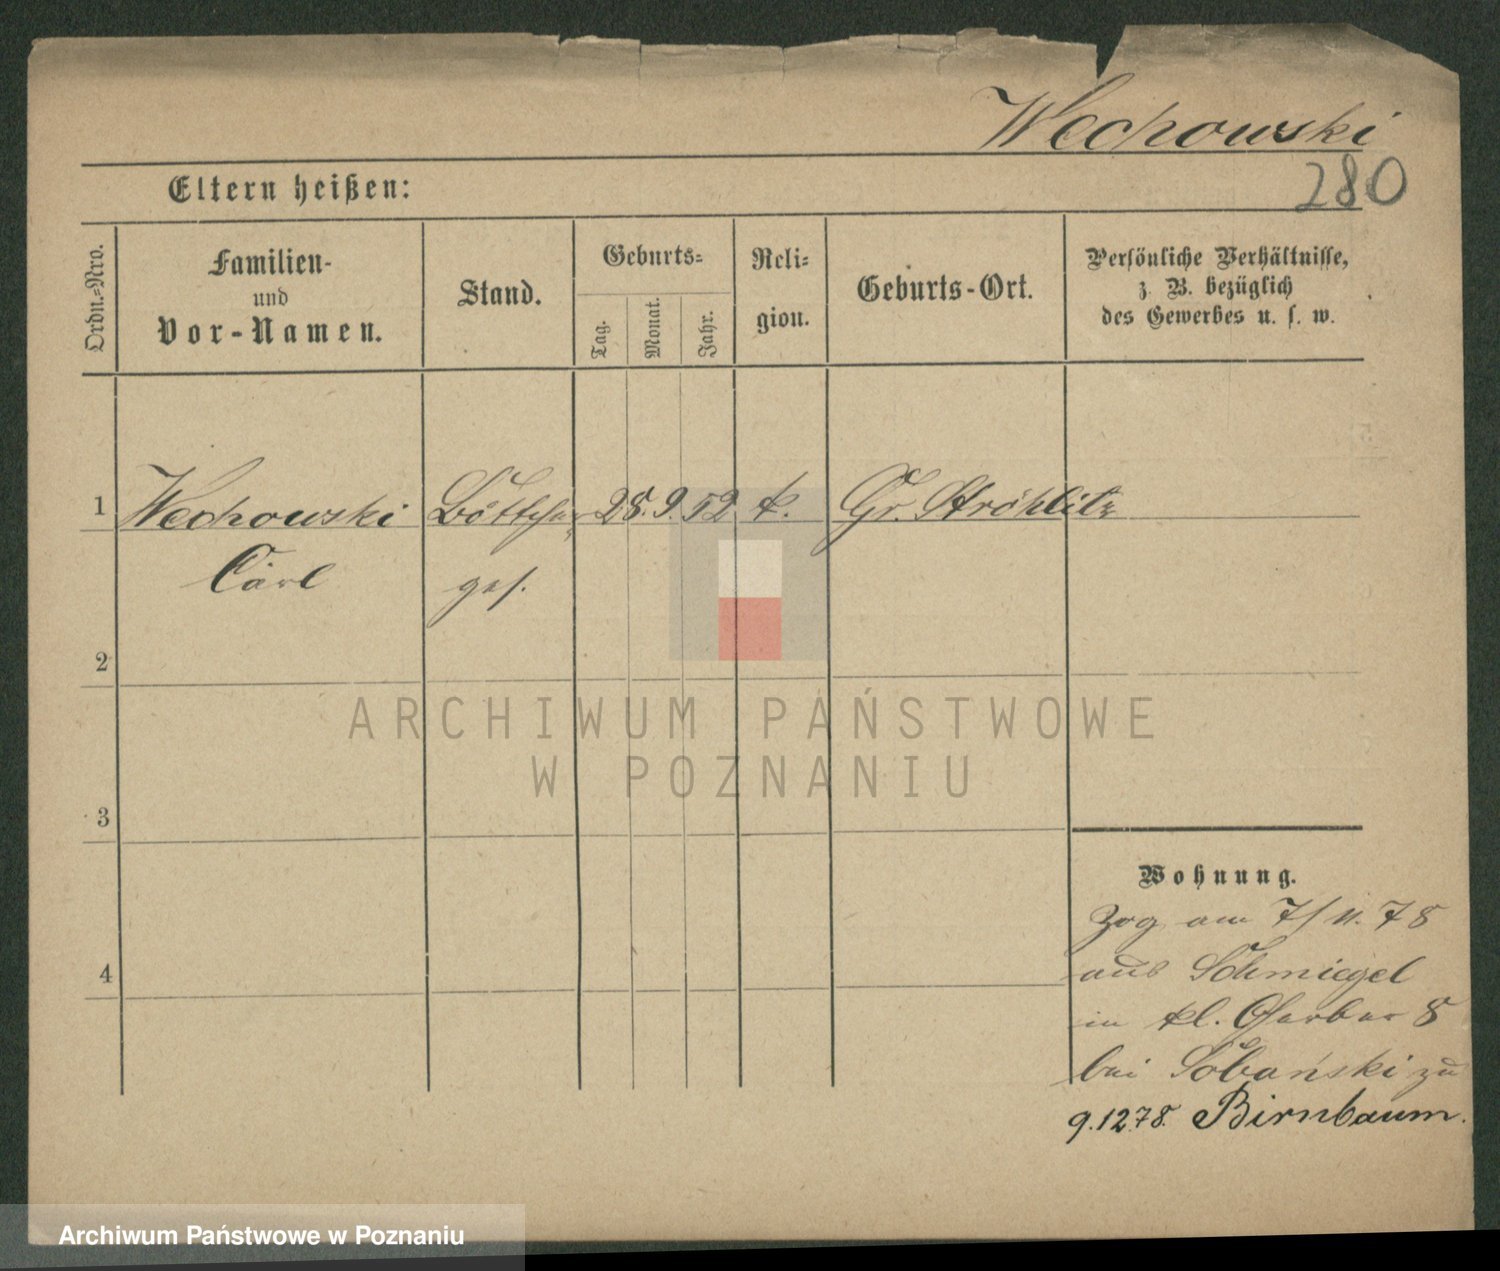 Wechowski
280
Eltern heißen:
Ordn.-Nro.
Familien-
und
Vor-Namen.
Stand.
Geburts-
Tag.
Monat.
Jahr.
Reli-
gion.
Geburts-Ort.
Persönliche Verhältnisse,
z. B. bezüglich
des Gewerbes u. s. w.
1 Wechowski Böttcher 28. 9. 52 k. Gr. Ströhlitz
Carl ges.
2
3
4
Wohnung.
Zog am 7/11. 78
aus Schmiegel
in kl. Gerber 8
bei Sobański zu
9.12.78. Birnbaum.
ARCHIWUM PAŃSTWOWE
W POZNANIU
Archiwum Państwowe w Poznaniu